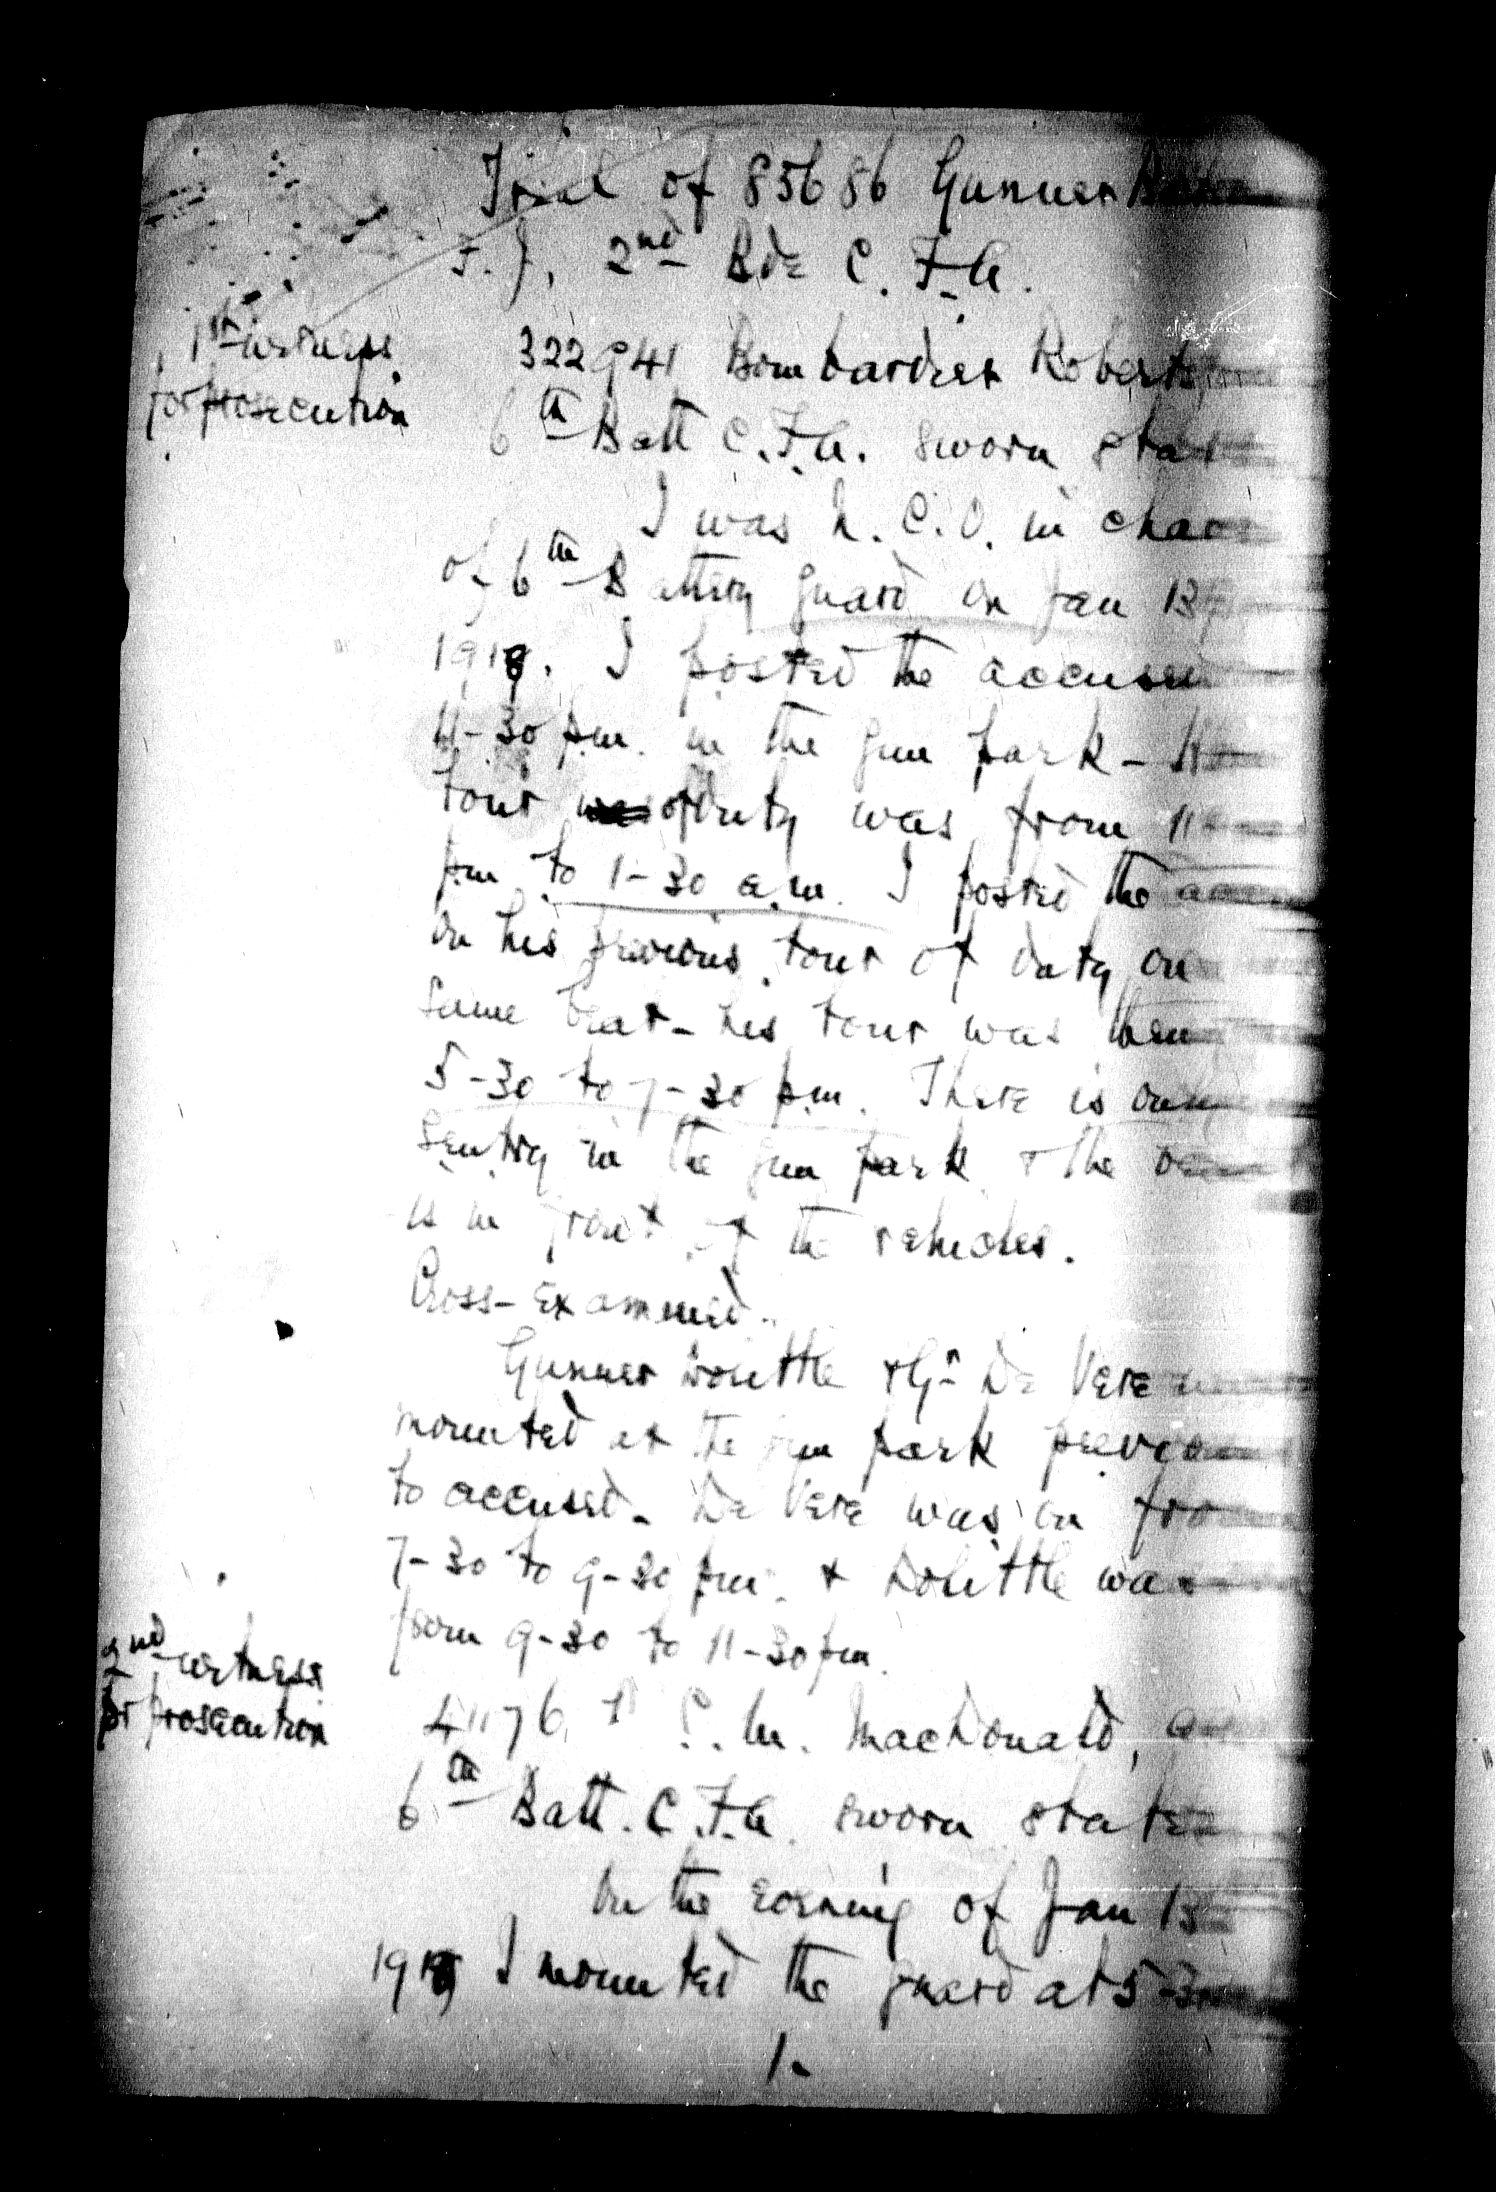 Trial of 85686 Gunner
F. J. 2nd Bde C. F. A.
1st witness
for prosecution
322941 Bombardier Roberts,
6th Batt C.F.A. sworn
I was N.C.O. in
of 6th Battery guard on Jan 13
1919. I posted the accused
11-30 p.m. in the gun park -
tour of duty was from 11
pm to 1-30 a.m. I posted the
on his previous tour of duty on
same beat - his tour was then
5-30 to 7-30 p.m. There is only
sentry in the gun park & the
is in front of the vehicles.
Cross-Examined.
Gunner Dolittle & Gr De Vere
mounted at the gun park previous
to accused. De Vere was on from
7-30 to 9-30 pm. & Dolittle was
from 9-30 to 11-30 pm.
2nd witness
for prosecution
41176 C. M. MacDonald,
6th Batt. C.F.A. sworn states
On the evening of Jan 13
1919 I mounted the guard at 5-30
1.